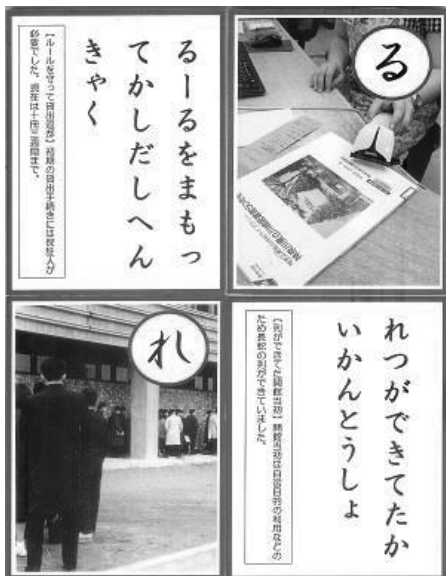 る
るーるをまもっ
てかしだしへん
きゃく
【ルールを守って貸出返却】初期の貸出手続きには保証人が
必要でした。現在は十冊 週間まで。
れ
れつができてたか
いかんとうしょ
【列ができてた開館当初】開館当初は自習目的の利用などの
ため長蛇の列ができていました。